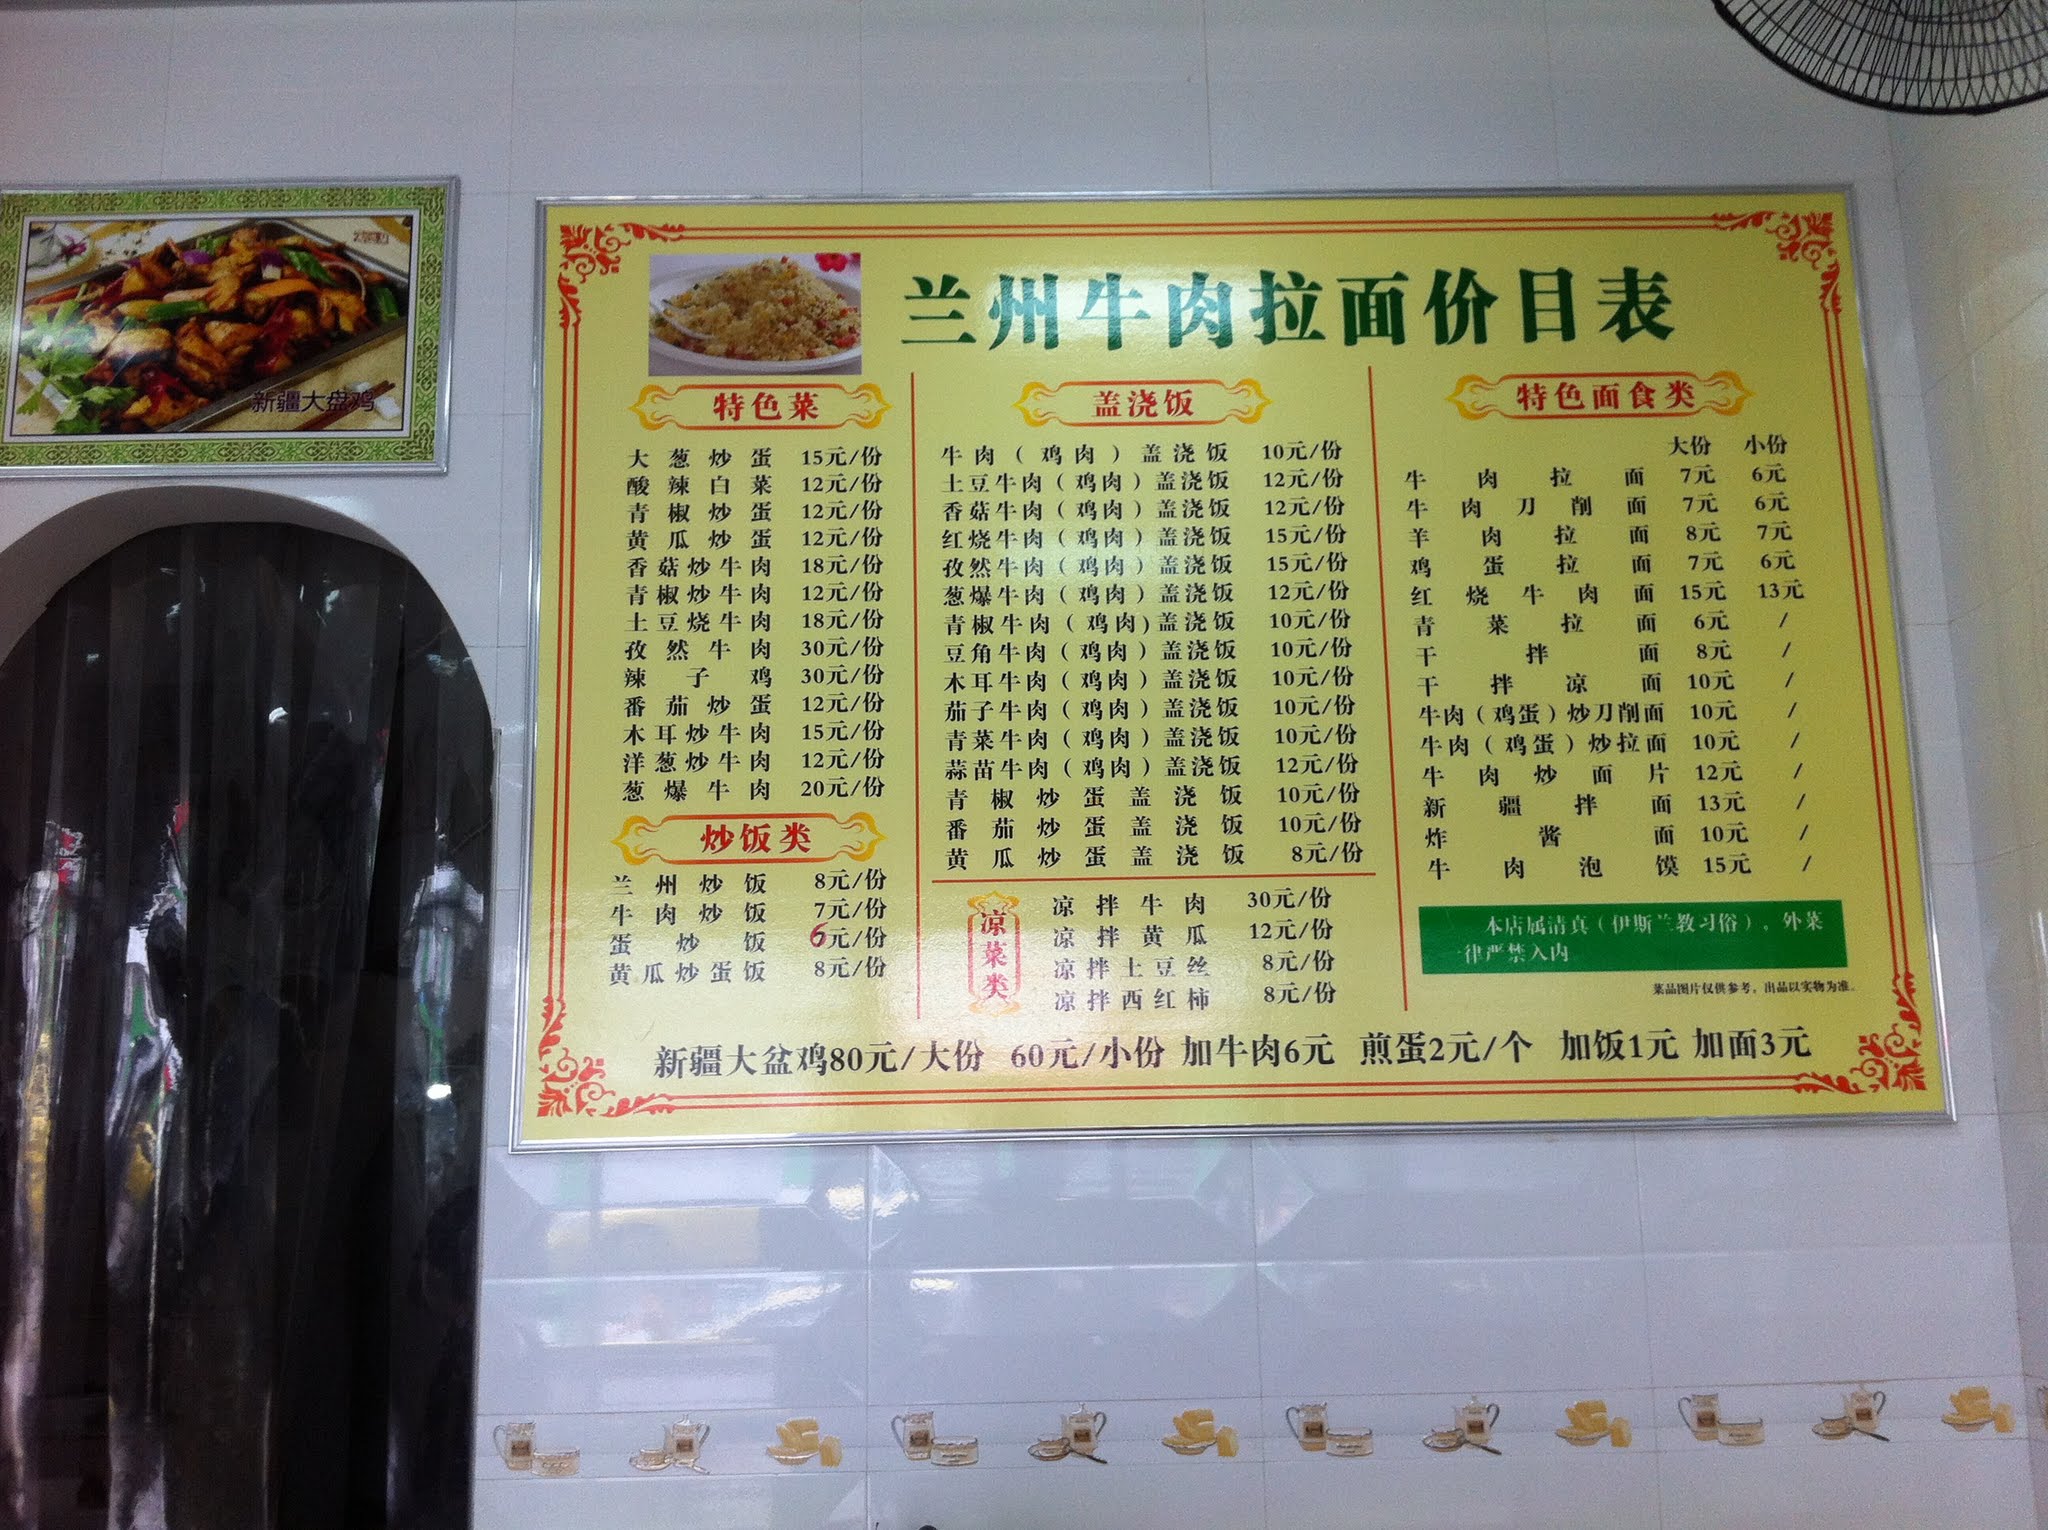 新疆大盘鸡
兰州牛肉拉面价目表
特色菜
大葱炒蛋 15元/份
酸辣白菜 12元/份
青椒炒蛋 12元/份
黄瓜炒蛋 12元/份
香菇炒牛肉 18元/份
青椒炒牛肉 12元/份
土豆烧牛肉 18元/份
孜然牛肉 30元/份
辣子鸡 30元/份
番茄炒蛋 12元/份
木耳炒牛肉 15元/份
洋葱炒牛肉 12元/份
葱爆牛肉 20元/份
炒饭类
兰州炒饭 8元/份
牛肉炒饭 7元/份
蛋炒饭 6元/份
黄瓜炒蛋饭 8元/份
盖浇饭
牛肉(鸡肉)盖浇饭 10元/份
土豆牛肉(鸡肉)盖浇饭 12元/份
香菇牛肉(鸡肉)盖浇饭 12元/份
红烧牛肉(鸡肉)盖浇饭 15元/份
孜然牛肉(鸡肉)盖浇饭 15元/份
葱爆牛肉(鸡肉)盖浇饭 12元/份
青椒牛肉(鸡肉)盖浇饭 10元/份
豆角牛肉(鸡肉)盖浇饭 10元/份
木耳牛肉(鸡肉)盖浇饭 10元/份
茄子牛肉(鸡肉)盖浇饭 10元/份
青菜牛肉(鸡肉)盖浇饭 10元/份
蒜苗牛肉(鸡肉)盖浇饭 12元/份
青椒炒蛋盖浇饭 10元/份
番茄炒蛋盖浇饭 10元/份
黄瓜炒蛋盖浇饭 8元/份
凉菜类
凉拌牛肉 30元/份
凉拌黄瓜 12元/份
凉拌土豆丝 8元/份
凉拌西红柿 8元/份
特色面食类
大份 小份
牛肉拉面 7元 6元
牛肉刀削面 7元 6元
羊肉拉面 8元 7元
鸡蛋拉面 7元 6元
红烧牛肉面 15元 13元
青菜拉面 6元 /
干拌面 8元 /
干拌凉面 10元 /
牛肉(鸡蛋)炒刀削面 10元 /
牛肉(鸡蛋)炒拉面 10元 /
牛肉炒面片 12元 /
新疆拌面 13元 /
炸酱面 10元 /
牛肉泡馍 15元 /
本店属清真(伊斯兰教习俗)。外菜
一律严禁入内
菜品图片仅供参考，出品以实物为准。
新疆大盆鸡80元/大份 60元/小份 加牛肉6元 煎蛋2元/个 加饭1元 加面3元